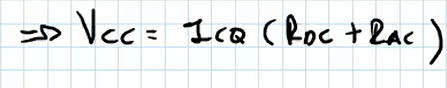 ⇒ Vcc = ICQ (RDC + RAC)